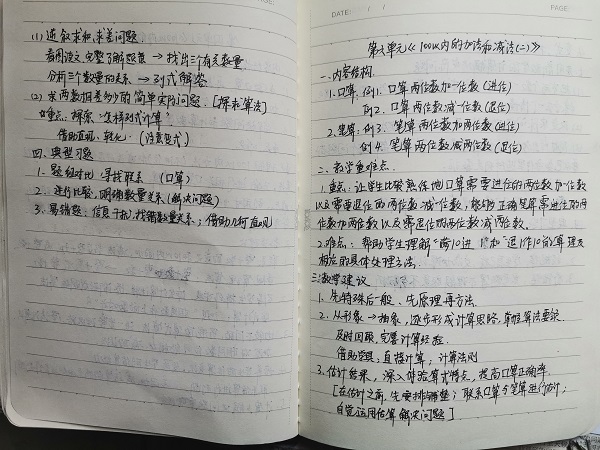 (1) 连续求和、求差问题.
看图读文,完整了解题意 → 找出三个有关数量
分析三个数量的关系 → 列式解答
(2) 求两数相差多少的简单实际问题.[探求算法]
重点:探索“怎样列式计算”
借助直观,转化.(注意变式)
四、典型习题
1. 题组对比,寻找联系 (口算)
2. 进行比较,明确数量关系(解决问题)
3. 易错题:信息干扰,找错数量关系;借助几何直观
DATE: / / PAGE:
第六单元《100以内的加法和减法(二)》
一、内容结构.
1.口算:例1.口算两位数加一位数(进位)
例2.口算两位数减一位数(退位)
2.笔算:例3.笔算两位数加两位数(进位)
例4.笔算两位数减两位数(退位)
二、教学重难点.
1.重点:让学生比较熟练地口算需要进位的两位数加一位数
以及需要退位的两位数减一位数,能够正确笔算需进位的两
位数加两位数以及需退位的两位数减两位数.
2.难点:帮助学生理解“满10进1”和“退1作10”的算理及
相应的具体处理方法.
三、教学建议
1.先特殊后一般、先原理再方法.
2.从形象→抽象,逐步形成计算思路,掌握算法要求.
及时回顾,完善计算经验.
借助学具;直接计算;计算法则
3.估计结果,深入体验算式特点,提高口算正确率.
[在估计之前,先安排铺垫;联系口算与笔算进行估计;
自觉运用估算解决问题]